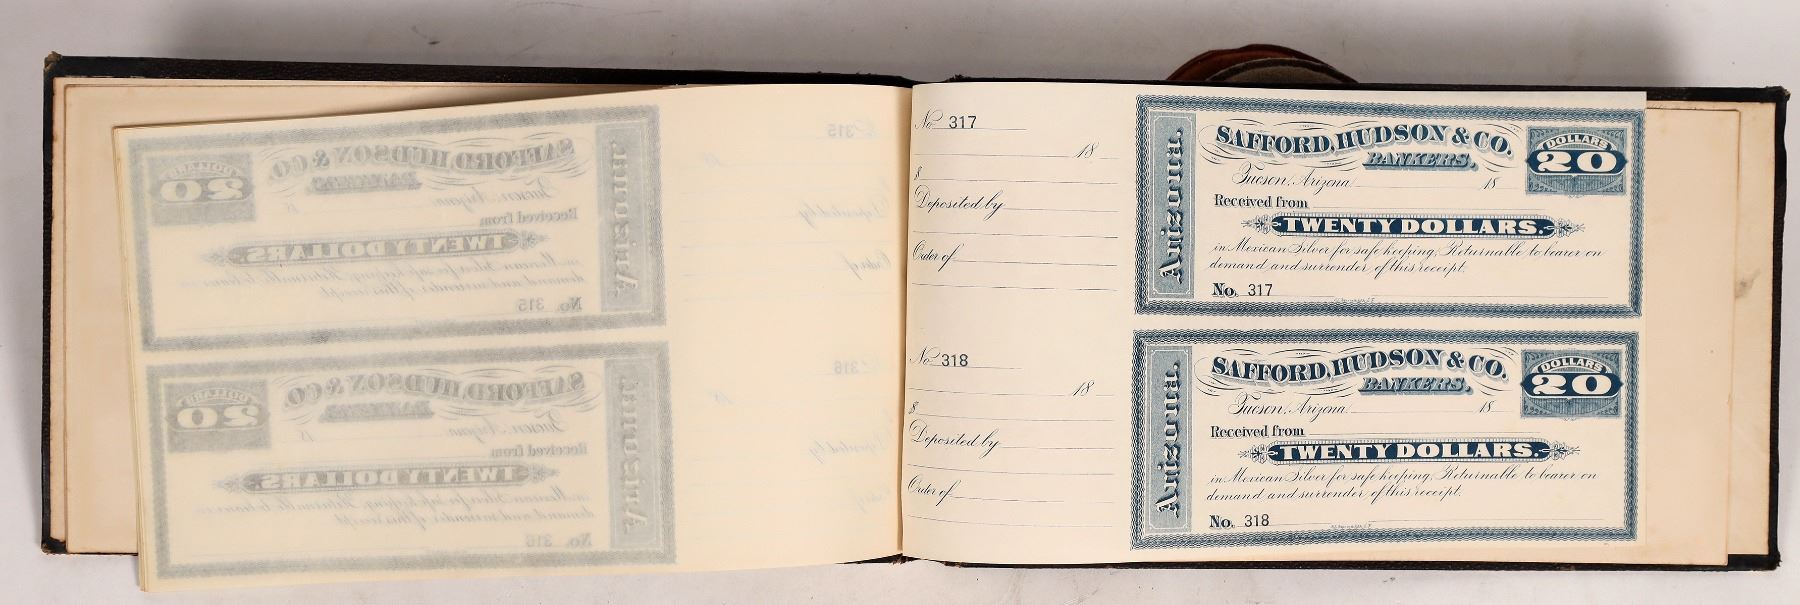 No. 317
18
$
Deposited by
Order of
Arizona.
SAFFORD, HUDSON & CO.
BANKERS,
DOLLARS
20
Tucson, Arizona 18
Received from
TWENTY DOLLARS.
in Mexican Silver for safe keeping, Returnable to bearer on
demand and surrender of this receipt.
No. 317
No. 318
18
$
Deposited by
Order of
Arizona.
SAFFORD, HUDSON & CO.
BANKERS,
DOLLARS
20
Tucson, Arizona 18
Received from
TWENTY DOLLARS.
in Mexican Silver for safe keeping, Returnable to bearer on
demand and surrender of this receipt.
No. 318